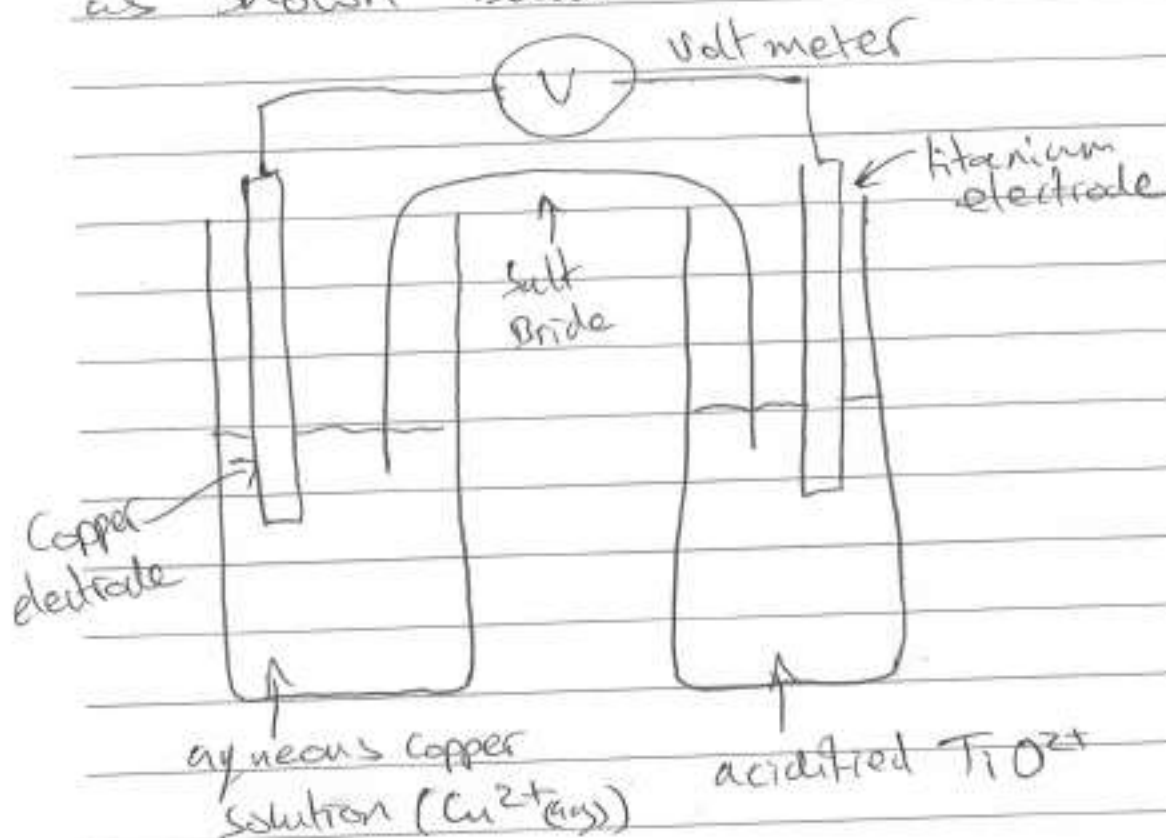 as shown
Voltmeter
V
titanium
electrode
Salt
Bride
Copper
electrode
aqueous copper
solution (Cu²⁺(aq))
acidified TiO²⁺